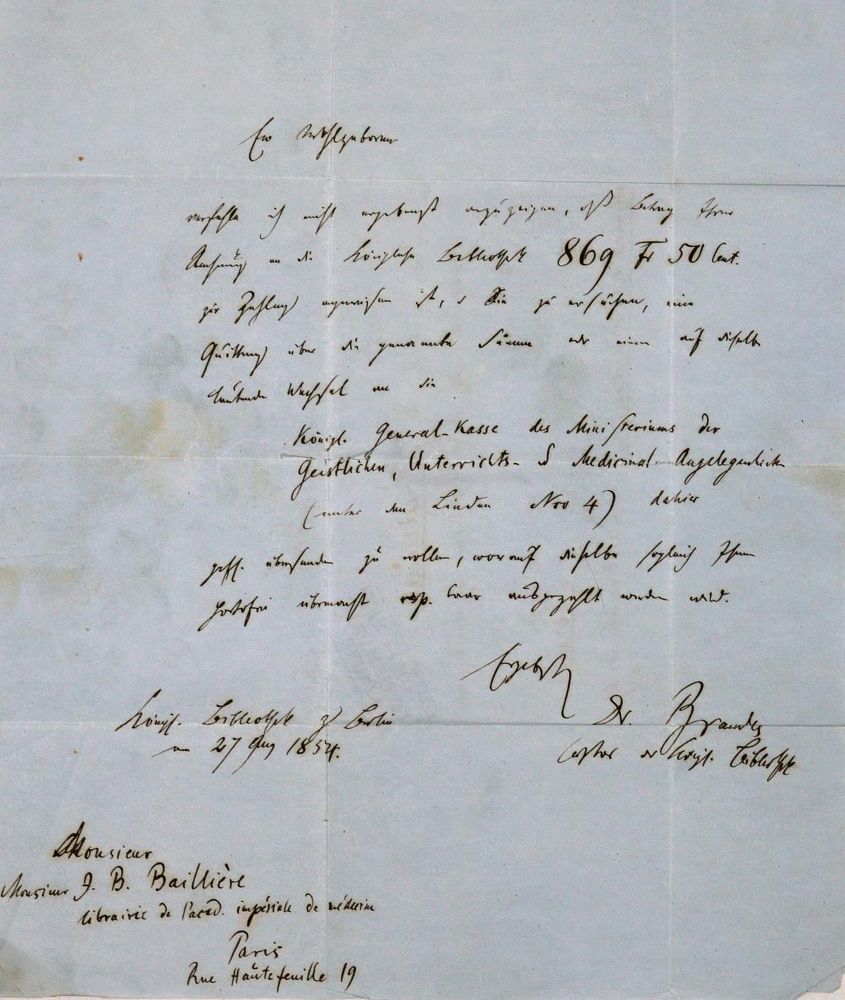 Ew Wohlgeboren
verfehle ich nicht ergebenst anzuzeigen, daß Betrag Ihrer
Rechnung an die Königliche Bibliothek 869 Fr 50 Cent.
zur Zahlung angewiesen ist, u Sie zu ersuchen, eine
Quittung über die genannte Summe oder einen auf dieselbe
lautenden Wechsel an die
Königl. General-Kasse des Ministeriums der
Geistlichen, Unterrichts- u Medicinal-Angelegenheiten
(unter den Linden Nro 4) dahier
gefl. übersenden zu wollen, worauf dieselbe sogleich Ihnen
portofrei übermacht resp. baar ausgezahlt werden wird.
Ergebenst
Dr. Brandes
Custos der Königl. Bibliothek
Königl. Bibliothek zu Berlin
am 27 Aug 1854.
Monsieur
Monsieur J. B. Baillière
librairie de l'acad. impériale de médecine
Paris
Rue Hautefeuille 19